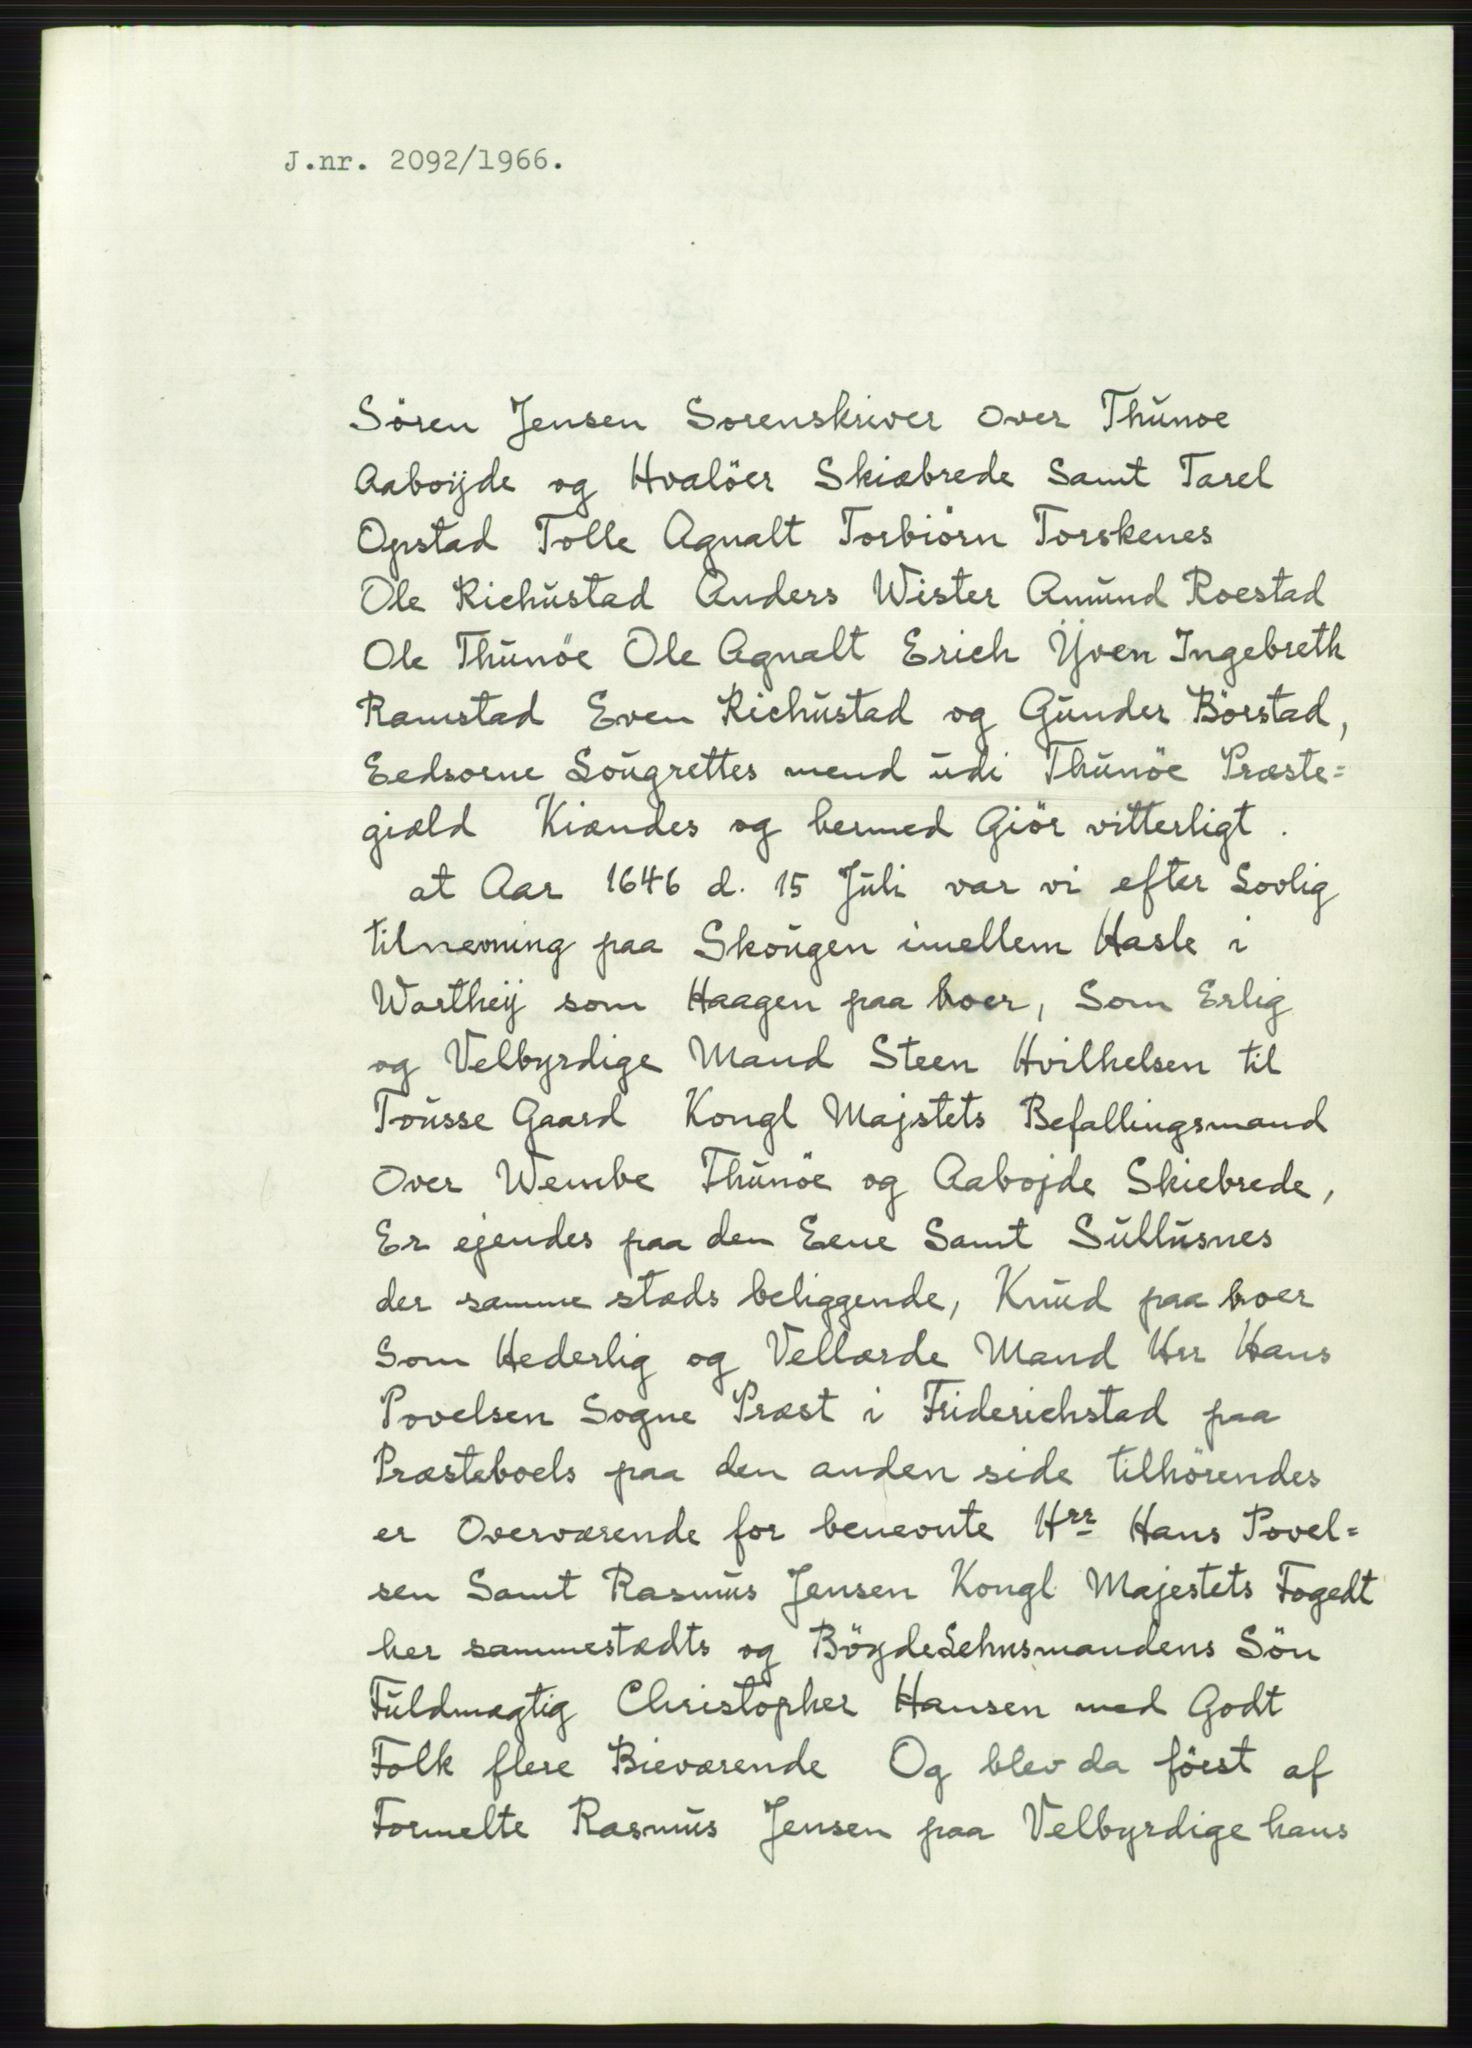 J.nr. 2092/1966.
Sören Jensen Sorenskriver over Thunoe
Aaboÿde og Hvalöer Skiæbrede Samt Tarel
Opstad Tolle Agnalt Torbiörn Torskenes
Ole Kichustad Anders Wister Amund Roestad
Ole Thunöe Ole Agnalt Erich Ÿven Ingebreth
Ramstad Even Kichustad og Gunder Börstad,
Eedsorne Lougrettes mend udi Thunöe Præste=
giæld Kiændes og hermed Giör vitterligt.
at Aar 1646 d. 15 Juli var vi efter Lovlig
tilnevning paa Skougen imellem Hasle i
Wartheÿ som Haagen paa boer, Som Erlig
og Velbyrdige Mand Steen Hvilhelsen til
Tousse Gaard Kongl Majstets Befallingsmand
over Wembe Thunöe og Aabojde Skiebrede,
Er ejendes paa den Eene Samt Sullusnes
der samme stæds beliggende, Knud paa boer
Som Hederlig og Vellærde Mand Hrr Hans
Povelsen Sogne Præst i Friderichstad paa
Præsteboels paa den anden side tilhörendes
er Overværende for benevnte Hrr Hans Povel=
sen Samt Rasmus Jensen Kongl Majestets Fogedt
her sammestædts og BöydeLehnsmandens Sön
Fuldmægtig Christopher Hansen med Godt
Folk flere Bieværende Og blev da föerst af
Formelte Rasmus Jensen paa Velbyrdige hans